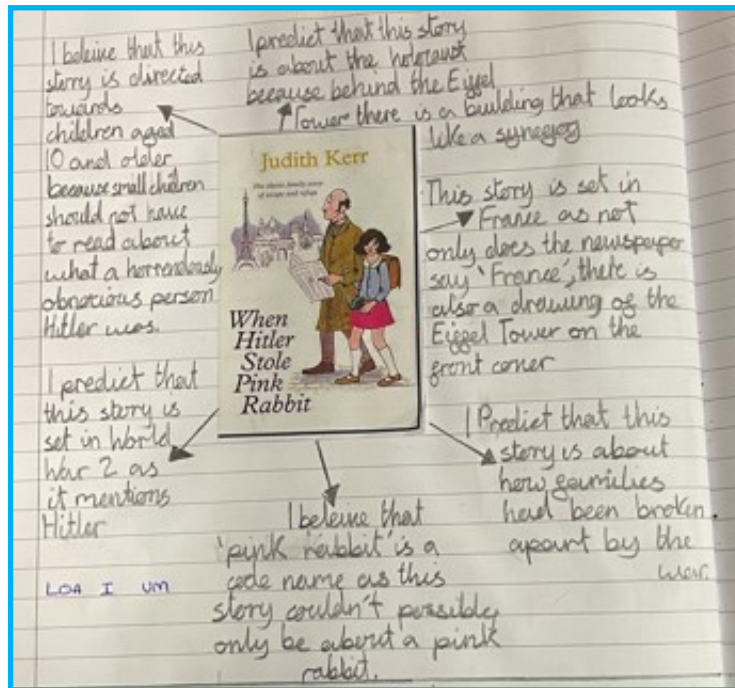 I beleive that this
story is directed
towards
children aged
10 and older
because small children
should not have
to read about
what a horrendously
obnotious person
Hitler was.
I predict that this story
is about the holocaust
because behind the Eiffel
Tower there is a building that looks
like a synegog
Judith Kerr
The classic family story
of escape and refuge
When
Hitler
Stole
Pink
Rabbit
This story is set in
France as not
only does the newspaper
say 'France', there is
also a drawing of the
Eiffel Tower on the
front cover
I predict that
this story is
set in World
War 2 as
it mentions
Hitler
I Predict that this
story is about
how families
had been broken
apart by the
war.
I beleive that
'pink rabbit' is a
code name as this
story couldn't possibly
only be about a pink
rabbit.
LOA I UM